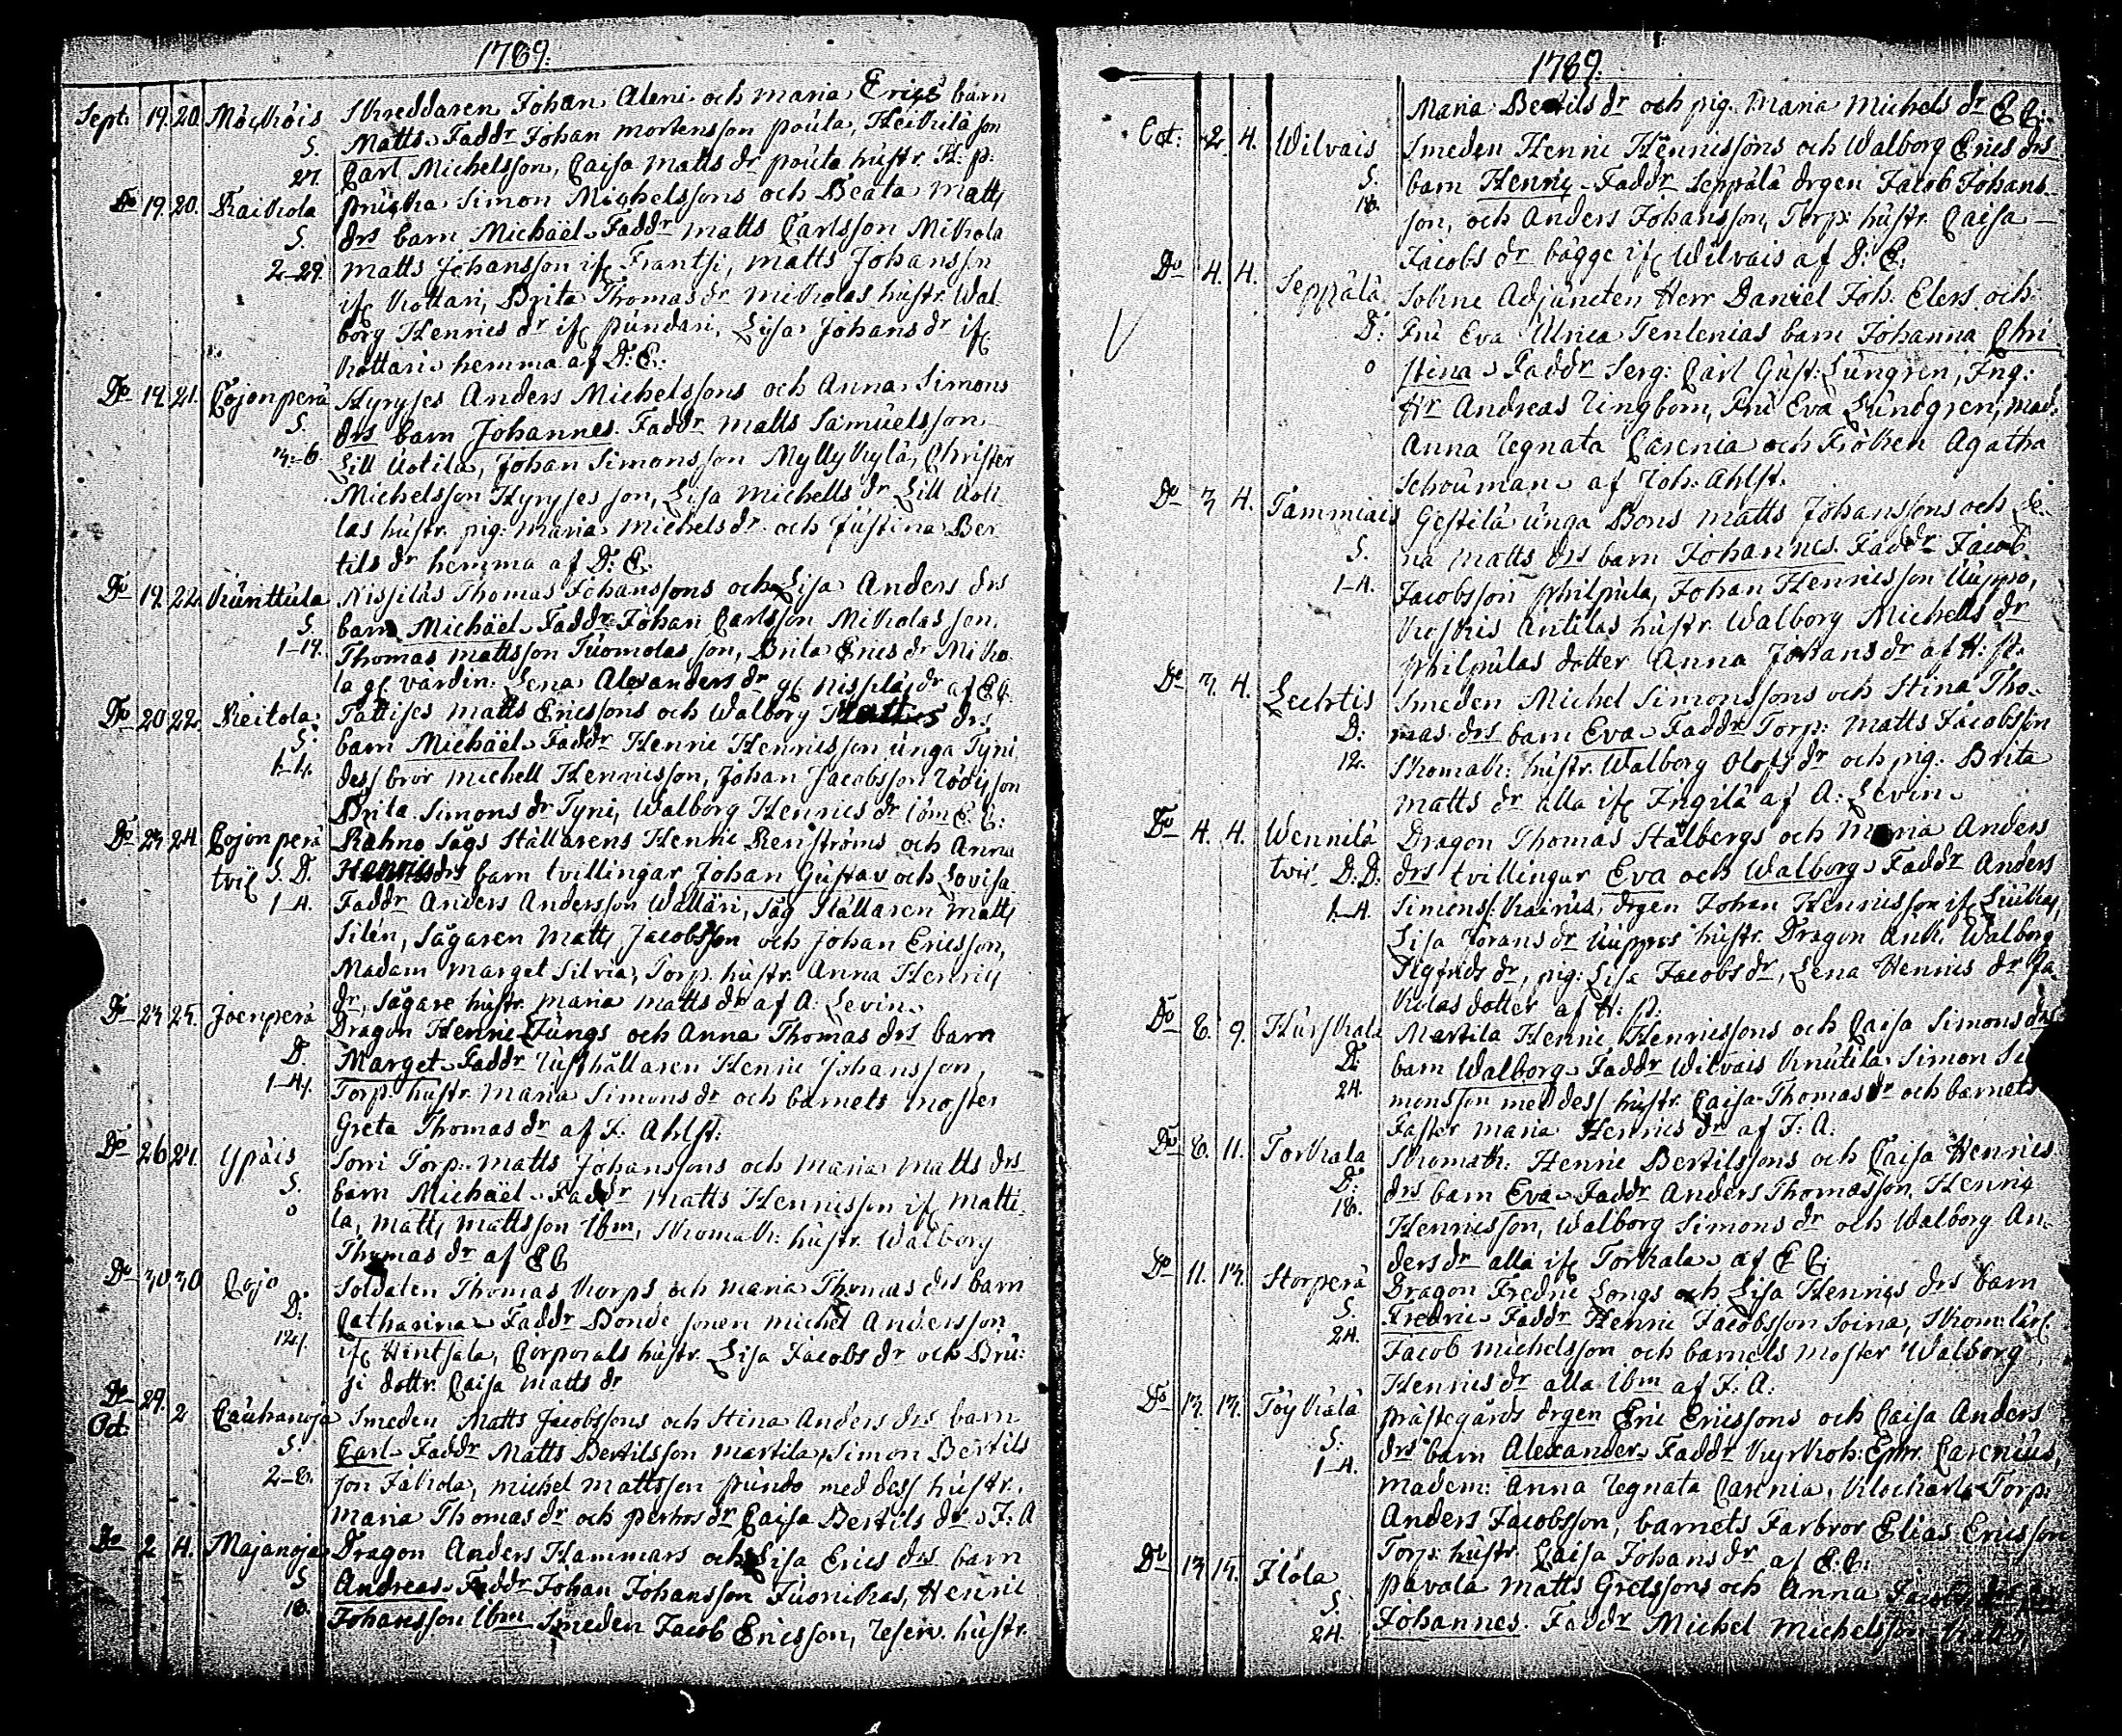 1789.
Sept. 19. 20. Möiskois Skreddaren Johan Aleni och Maria Erics barn
S. Matts. Faddr Johan Mortensson pouta, Heickilä son
27. Carl Michelsson, Caisa Matts dr pouta hustr. H: p:
Do 19. 20. Raikkola Simon Michelssons och Beata Matts
S. drs barn Michaël. Faddr Matts Carlsson Mikkola
2-29. Matts Johansson if Frantsi, Matts Johansson
if Kottari, Brita Thomas dr Mikkolas hustr. Wal-
borg Henrics dr if pundari, Lisa Johans dr if
Kottari hemma af D: E:
Do 19. 21. Cojonperä Hyryses Anders Michelssons och Anna Simons
S. drs barn Johannes. Faddr Matts Samuelsson
3-6. Lill Uotila, Johan Simonsson Myllykylä, Christer
Michelsson Hyryses son, Lisa Michells dr Lill Uoti
las hustr. pig: Maria Michels dr och Justina Ber
tils dr hemma af D: E:
Do 19. 22. Kunttula Nissilas Thomas Johanssons och Lisa Anders drs
S. barn Michaël. Faddr Johan Carlsson Mikolas son,
1-14. Thomas Mattsson Tuomolas son, Brita Erics dr Mikko
la gl. värdin: Lena Alexanders dr gl. Nissilä dr af E C.
Do 20 22. Keitola Tattises Matts Ericssons och Walborg Matts drs
S. barn Michaël. Faddr Henric Henricsson unga Tyni
1-4. dess bror Michell Henricsson, Johan Jacobsson
Brita Simons dr Tyni, Walborg Henrics dr ibm E. C:
Do 23 24. Cojonperä Rahno Sågs Ställarens Henric Renströms och Anna
tvil S. D. Henricsdrs barn tvillingar Johan Gustav och Lovisa
1-4. Faddr Anders Andersson Walläri, Såg Ställaren Matts
Silén, Sågaren Matts Jacobsson och Johan Ericsson,
Madam Marget Silvia, Torp. hustr. Anna Henrics
dr, Sågare hustr. Maria Matts dr af A: Levin.
Do 23 25. Joenperä Dragon Henric Ljungs och Anna Thomas drs barn
D. Marget. Faddr Rusthållaren Henric Johansson,
1-4. Torp: hustr. Maria Simons dr och barnets moster
Greta Thomas dr af J. Ahlst.
Do 26 27. Ypäis Sorri Torp: Matts Johanssons och Maria Matts drs
S. barn Michaël. Faddr Matts Henricsson if Matti-
0 la, Matts Mattsson ibm, Skomak: hustr. Walborg
Thomas dr af E C
Do 30 30 Cojo Soldaten Thomas Korps och Maria Thomas drs barn
D. Catharina. Faddr Bonde sonen Michel Andersson
124. if Hintsala, Corporals hustr. Lisa Jacobs dr och Bru:
si dottr. Caisa Matts dr
Do 29. 2 Cauhanoja Smeden Matts Jacobssons och Stina Anders drs barn
Oct: S. Carl. Faddr Matts Bertilsson Martila, Simon Bertils
2-8. son Jakola, Michel Mattsson pundo med dess hustr.
Maria Thomas dr och perhos dr Caisa Bertils dr. J: A
Do 2 4. Majanoja Dragon Anders Hammars och Lisa Erics drs barn
S Andreas. Faddr Johan Johansson Juonikas, Henric
18. Johansson ibm Smeden Jacob Ericsson, reserv. hustr.
1789.
Maria Bertils dr och pig. Maria Michels dr E C:
Oct: 2 4. Wilvais Smeden Henric Henricssons och Walborg Erics drs
S. barn Henric. Faddr Seppälä drgen Jacob Johans-
18. son, och Anders Johansson, Torp: hustr. Caisa
Jacobs dr bägge if Wilvais af D: E:
Do 4. 4. Seppälä Sokne Adjuncten Herr Daniel Joh. Elers och
D: Fru Eva Ulrica Tenlenias barn Johanna Chri
0 stina. Faddr Serg: Carl Gust: Lungren, Fng:
Hr Andreas Ungbom, Fru Eva Lundgren, Mad:
Anna Regnata Carenia och Fröken Agatha
Schouman. af Joh: Ahlst.
Do 3 4. Tammiais Gestilä unga Bons Matts Johanssons och Le-
S. na Matts drs barn Johannes. Faddr Jacob
1-4. Jacobsson philpula, Johan Henricsson Uuppo,
Koskis Antilas hustr. Walborg Michells dr
philpulas dotter Anna Johans dr af H: p:
Do 3. 4. Lechtis Smeden Michel Simonssons och Stina Tho-
D: mas drs barn Eva. Faddr Torp: Matts Jacobsson
12. Skomak: hustr. Walborg Olofs dr och pig. Brita
Matts dr alla if Ingilä af A: Levin.
Do 4. 4. Wennilä Dragon Thomas Stålbergs och Maria Anders
tvil D: D: drs tvillingar Eva och Walborg. Faddr Anders
1-4. Simonss: Kairus, drgen Johan Henricsson if
Lisa Jörans dr Uuppos hustr. Dragon Enk. Walborg
Sigfrids dr, pig: Lisa Jacobs dr, Lena Henrics dr Ja-
kolas dotter af H: p:
Do 8. 9. Hurskala Martila Henric Henricssons och Caisa Simons drs
D. barn Walborg. Faddr Wilvais Knutila Simon Si
24. monsson med dess hustr. Caisa Thomas dr och barnets
Faster Maria Henrics dr af J. A:
Do 8. 11. Torkala Skomak: Henric Bertilssons och Caisa Henrics
D: drs barn Eva. Faddr Anders Thomasson, Henric
18. Henricsson, Walborg Simons dr och Walborg An-
ders dr alla if Torkala af E C:
Do 11. 13. Storperä Dragon Fredric Longs och Lisa Henrics drs barn
S. Fredric. Faddr Henric Jacobsson Soina, Skom: lärl.
24. Jacob Michelsson och barnets Moster Walborg
Henrics dr alla ibm af J. A:
Do 13. 13. Töykälä prästegårds drgen Eric Ericssons och Caisa Anders
S. drs barn Alexander. Faddr Kyrkoh: Ephr. Carenius,
1-4. Madem: Anna Regnata Carenia, Klockarts Torp:
Anders Jacobsson, barnets Farbror Elias Ericsson
Torp: hustr. Caisa Johans dr af E: C:
Do 13 15. Ilola pavola Matts Grelssons och Anna Jacobs
S. Johannes. Faddr Michel Michelsson
24.